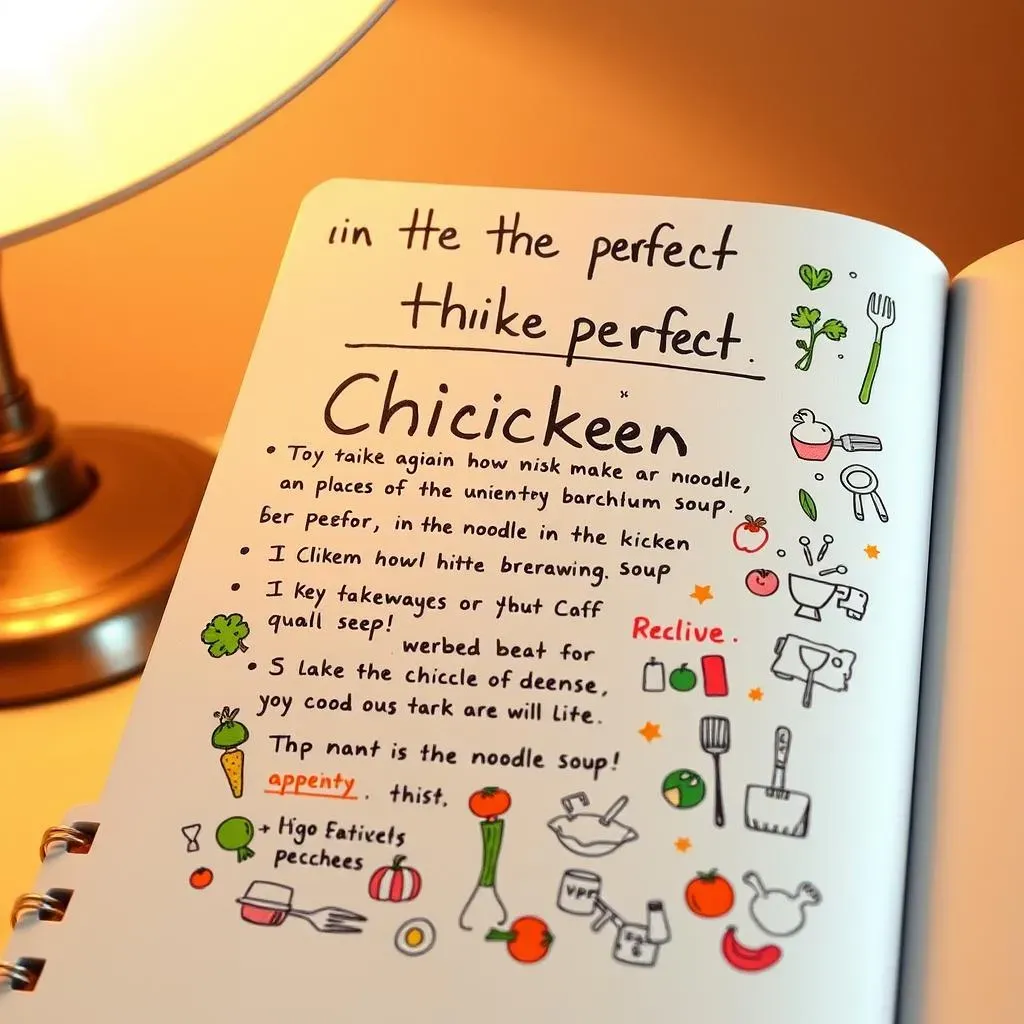 iin tte the perfect
thiike perfect.
Chicickeen
• Toy taike agiain how nisk make ar nioodle,
an places of the unientry barchlum soup.
ber peefor, in the noodle in the kicken
• I Clikem howl hitte brerawing. soup
• I Key takewayes or ybut Caff
quall seep!
werbed beat for
• S Lake the chiccle of deense,
yoy cood ous tark are will lite.
Thp nant is the noodle soup!
appenty. thist.
+ Higo Fativels
pecchees
Reclive.
VPR